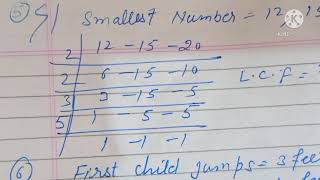 (5) Smallest Number = 12
2 | 12 - 15 - 20
2 | 6 - 15 - 10
3 | 3 - 15 - 5
5 | 1 - 5 - 5
1 - 1 - 1
L.C.F =
(6) First child jumps = 3 fee